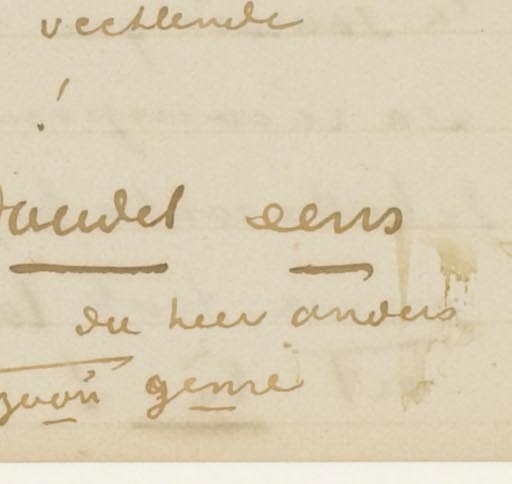 vechtende
!
Daudet eens
du heer anders
zoo'n genre